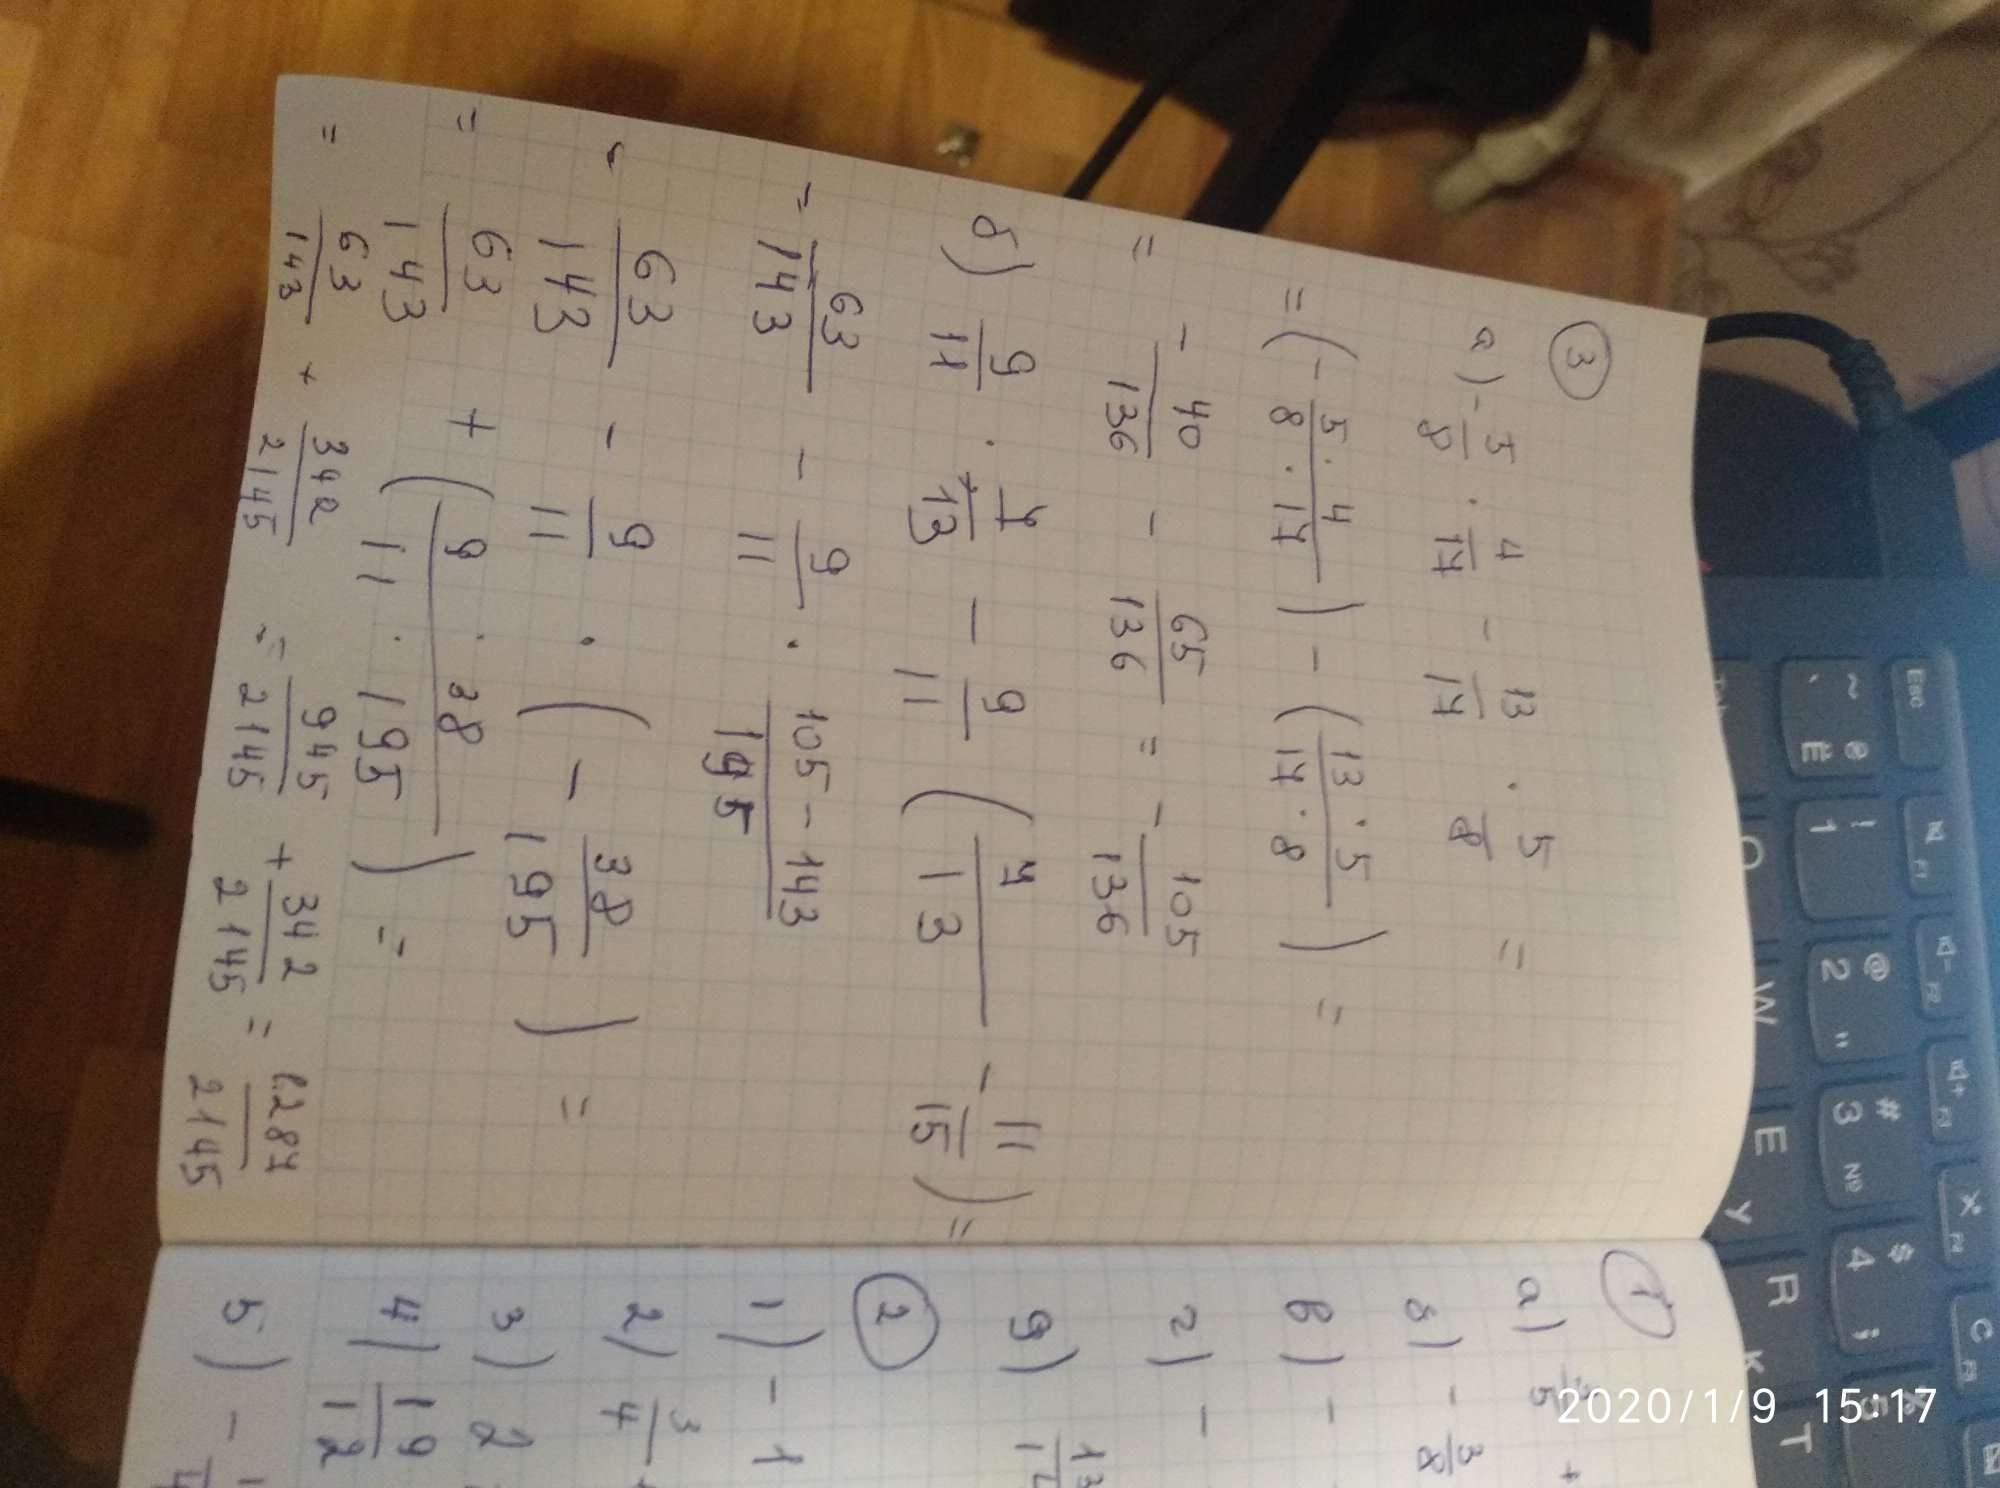 ③
а) - 5/8 · 4/17 - 13/17 · 5/8 =
= (- 5·4/8·17) - (13·5/17·8) =
= - 40/136 - 65/136 = - 105/136
б) 9/11 · 7/13 - 9/11 (7/13 - 11/15) =
= 63/143 - 9/11 · 105-143/195
63/143 - 9/11 · (- 38/195) =
= 63/143 + (9·38/11·195) =
= 63/143 + 342/2145 = 945/2145 + 342/2145 = 1287/2145
①
а)
б) - 3/8
в) -
г) -
д)
②
1) - 1
2) 3/4
3) 2
4) 19/12
5) -
Esc
~ ` ё Ё
! 1
@ 2 "
# 3 №
$ 4 ;
5
F1
F2
F3
Q
W
E
R
T
У
К
2020/1/9 15:17